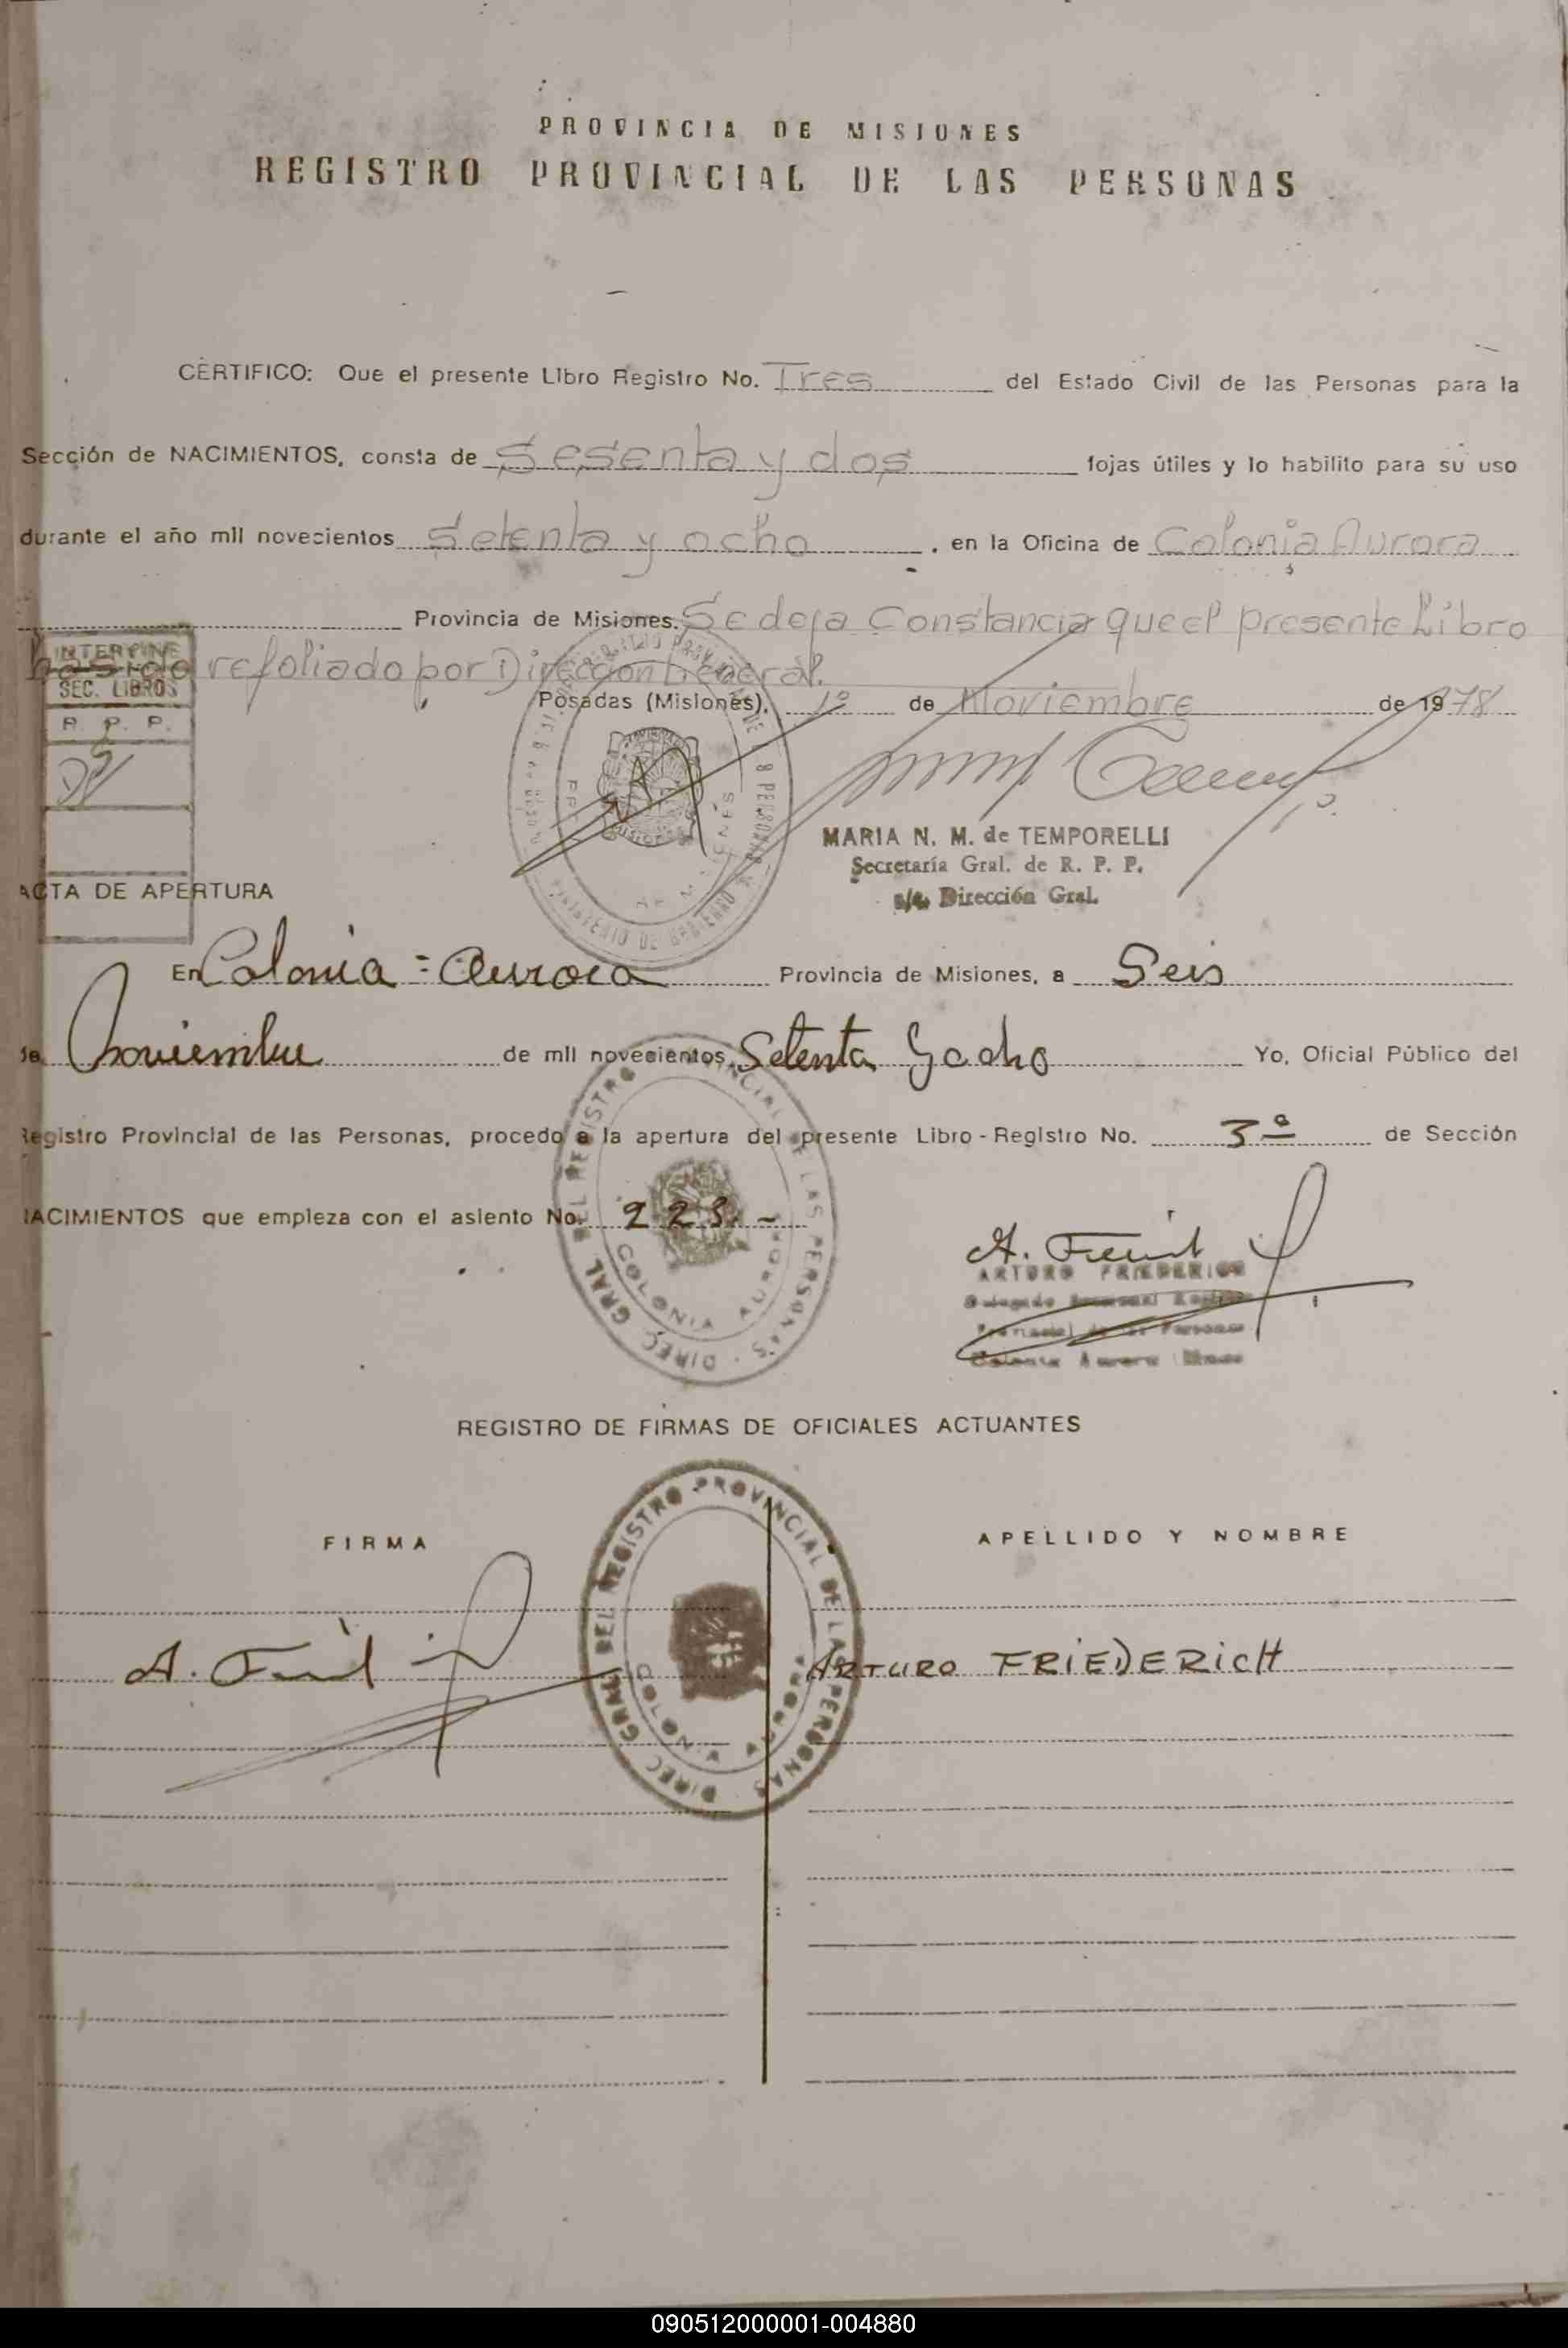 PROVINCIA DE MISIONES
REGISTRO PROVINCIAL DE LAS PERSONAS
CERTIFICO: Que el presente Libro Registro No. Tres del Estado Civil de las Personas para la
Sección de NACIMIENTOS, consta de Sesenta y dos fojas útiles y lo habilito para su uso
durante el año mil novecientos Setenta y ocho, en la Oficina de Colonia Aurora
Provincia de Misiones. Se deja Constancia que el presente Libro
ha sido refoliado por Dirección General.
INTERVINE
SEC. LIBROS
R. P. P.
Posadas (Misiones), 1º de Noviembre de 1978
MARIA N. M. de TEMPORELLI
Secretaría Gral. de R. P. P.
s/c. Dirección Gral.
ACTA DE APERTURA
En Colonia = Aurora Provincia de Misiones, a Seis
de Noviembre de mil novecientos Setenta y ocho Yo, Oficial Público del
Registro Provincial de las Personas, procedo a la apertura del presente Libro - Registro No. 3º de Sección
NACIMIENTOS que empieza con el asiento No. 223.-
DIREC GRAL DEL REGISTRO PROVINCIAL DE LAS PERSONAS
COLONIA AURORA
ARTURO FRIEDERICH
Colonia Aurora
REGISTRO DE FIRMAS DE OFICIALES ACTUANTES
FIRMA APELLIDO Y NOMBRE
DIREC GRAL DEL REGISTRO PROVINCIAL DE LAS PERSONAS
COLONIA AURORA
ARTURO FRIEDERICH
090512000001-004880